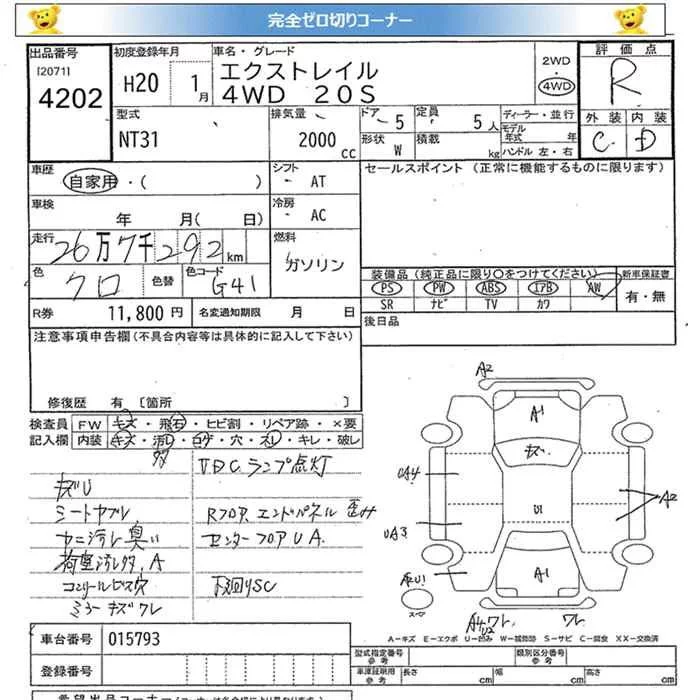 完全ゼロ切りコーナー
出品番号
[2071]
4202
初度登録年月
H20 1月
車名・グレード
エクストレイル
4WD 20S
2WD
・
4WD
評価点
R
外装 内装
C D
型式
NT31
排気量
2000 cc
ドア 5
形状 W
定員 5人
積載 kg
ディーラー・並行
モデル年式 年
ハンドル 左・右
車歴
自家用・( )
シフト
AT
セールスポイント (正常に機能するものに限ります)
車検
年 月( 日)
冷房
AC
走行
26万7千292km
燃料
ガソリン
色
クロ
色替
色コード
G41
装備品 (純正品に限り○をつけてください)
PS PW ABS エアB AW
SR ナビ TV カワ
新車保証書
有・無
R券 11,800円
名変通知期限 月 日
後日品
注意事項申告欄(不具合内容等は具体的に記入して下さい)
修復歴 有 [箇所 ]
検査員
記入欄
FW キズ・飛石・ヒビ割・リペア跡・×要
内装 キズ・汚レ・コゲ・穴・スレ・キレ・破レ
VDCランプ点灯
キズU
シートヤブレ
ヤニ汚レ臭い
Rフロア、エンドパネル歪み
センターフロアUA.
下廻りSC
ミラーキズワレ
A2
A1
キズ
UA4
U1
A2
UA3
A1
スペア
A4ワレ
U2
ワレ
A-キズ E-エクボ U-凹み W-補修跡 S-サビ C-腐食 XX-交換済
車台番号 015793
登録番号
型式指定番号
参考
類別区分番号
参考
車庫証明用
参考
長さ cm 幅 cm 高さ cm
希望出品コーナー